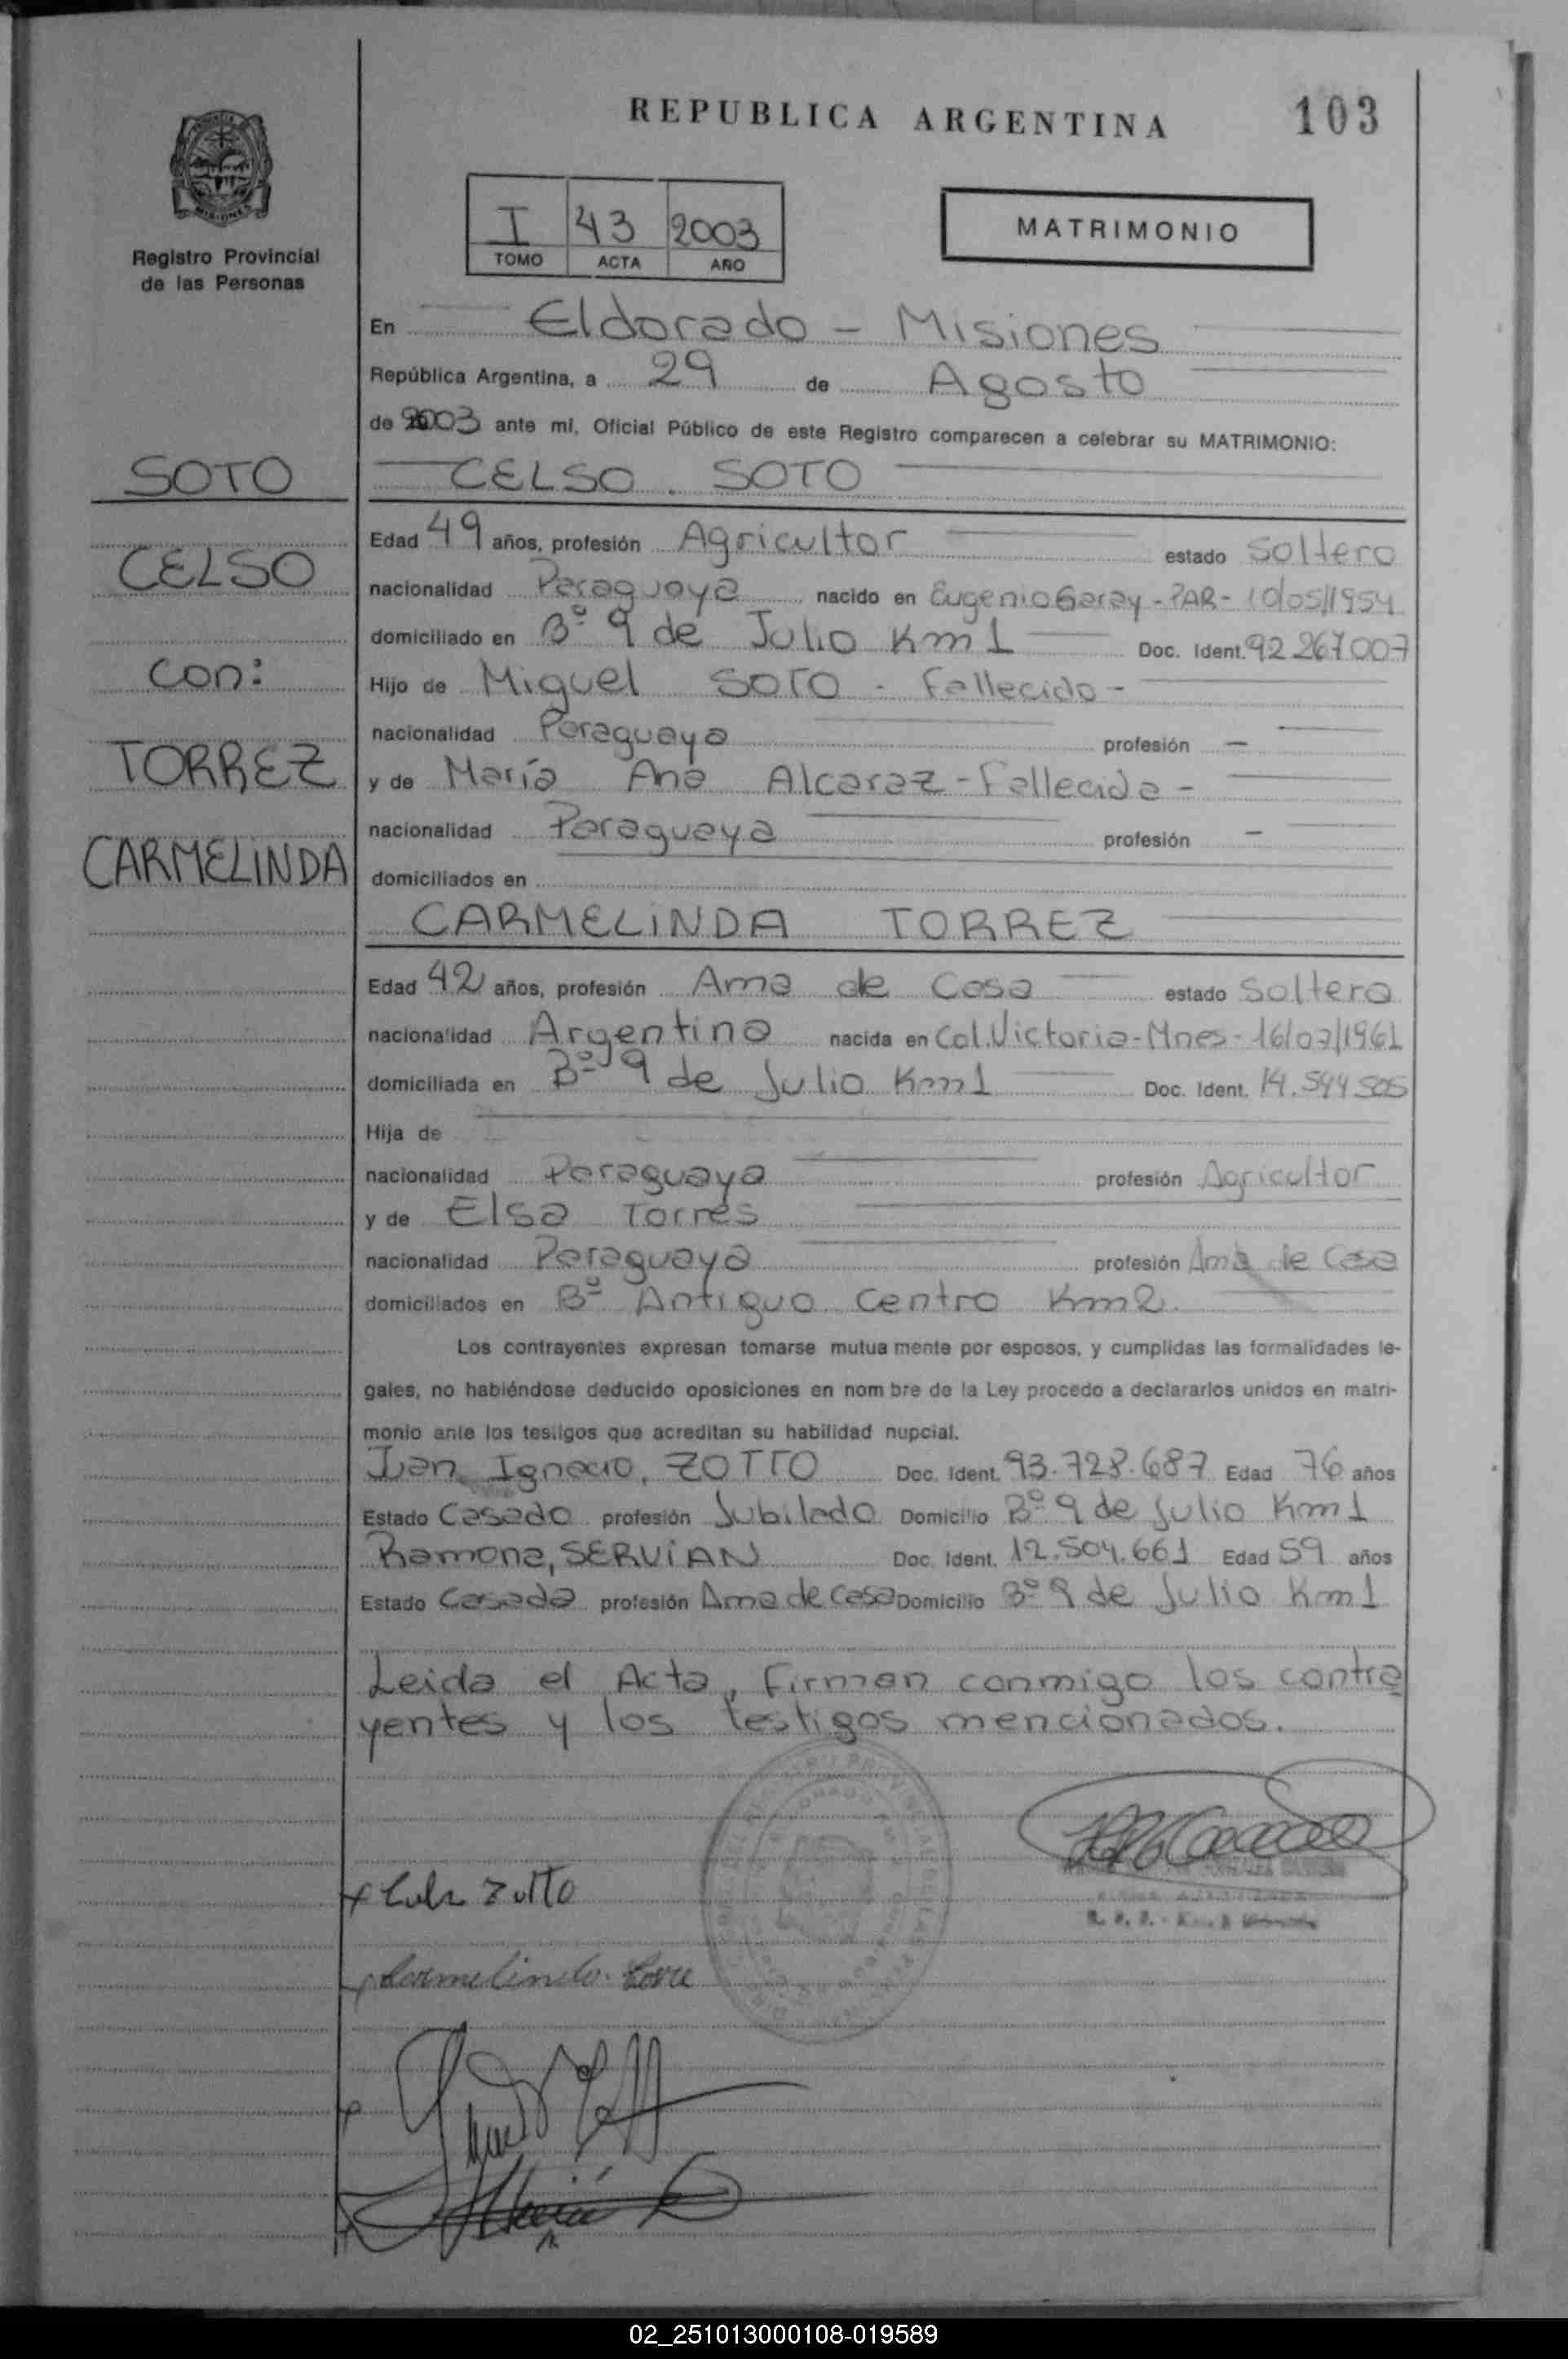 REPUBLICA ARGENTINA
103
MISIONES
Registro Provincial
de las Personas
I 43 2003
TOMO ACTA AÑO
MATRIMONIO
En Eldorado - Misiones
República Argentina, a 29 de Agosto
de 2003 ante mí, Oficial Público de este Registro comparecen a celebrar su MATRIMONIO:
SOTO
CELSO
con:
TORREZ
CARMELINDA
CELSO . SOTO
Edad 49 años, profesión Agricultor estado Soltero
nacionalidad Paraguaya nacido en Eugenio Garay - PAR - 10/05/1954
domiciliado en Bº 9 de Julio Km 1 Doc. Ident. 92 267007
Hijo de Miguel SOTO - Fallecido -
nacionalidad Paraguaya profesión —
y de María Ana Alcaraz - Fallecida -
nacionalidad Paraguaya profesión —
domiciliados en
CARMELINDA TORREZ
Edad 42 años, profesión Ama de Casa estado Soltera
nacionalidad Argentina nacida en Col. Victoria - Mnes - 16/07/1961
domiciliada en Bº 9 de Julio Km 1 Doc. Ident. 14.544 505
Hija de
nacionalidad Paraguaya profesión Agricultor
y de Elsa Torres
nacionalidad Paraguaya profesión Ama de Casa
domiciliados en Bº Antiguo Centro Km 2.
Los contrayentes expresan tomarse mutua mente por esposos, y cumplidas las formalidades le-
gales, no habiéndose deducido oposiciones en nom bre de la Ley procedo a declararlos unidos en matri-
monio ante los testigos que acreditan su habilidad nupcial.
Juan Ignacio, ZOTTO Doc. Ident. 93.728.687 Edad 76 años
Estado Casado profesión Jubilado Domicilio Bº 9 de Julio Km 1
Ramona, SERVIAN Doc. Ident. 12.504.661 Edad 59 años
Estado Casada profesión Ama de casa Domicilio Bº 9 de Julio Km 1
Leida el Acta, firman conmigo los contra
yentes y los testigos mencionados.
02_251013000108-019589